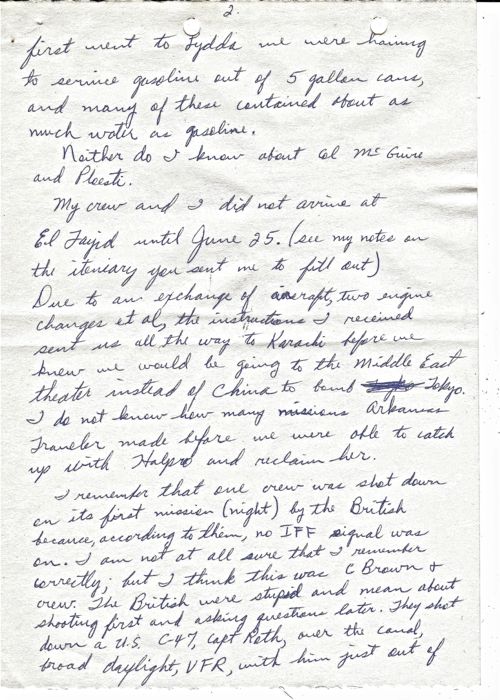 2.
first went to Lydda we were having
to service gasoline out of 5 gallon cans,
and many of these contained about as
much water as gasoline.
Neither do I know about Col McGuire
and Ploesti.
My crew and I did not arrive at
El Fayid until June 25. (see my notes on
the iteniary you sent me to fill out)
Due to an exchange of aircraft, two engine
changes et al, the instructions I received
sent us all the way to Karachi before we
knew we would be going to the Middle East
theater instead of China to bomb Tokyo.
I do not know how many missions Arkansas
Traveler made before we were able to catch
up with Halpro and reclaim her.
I remember that one crew was shot down
on its first mission (night) by the British
because, according to them, no IFF signal was
on. I am not at all sure that I remember
correctly; but I think this was C Brown &
crew. The British were stupid and mean about
shooting first and asking questions later. They shot
down a U.S. C47, Capt Roth, over the canal,
broad daylight, VFR, with him just out of